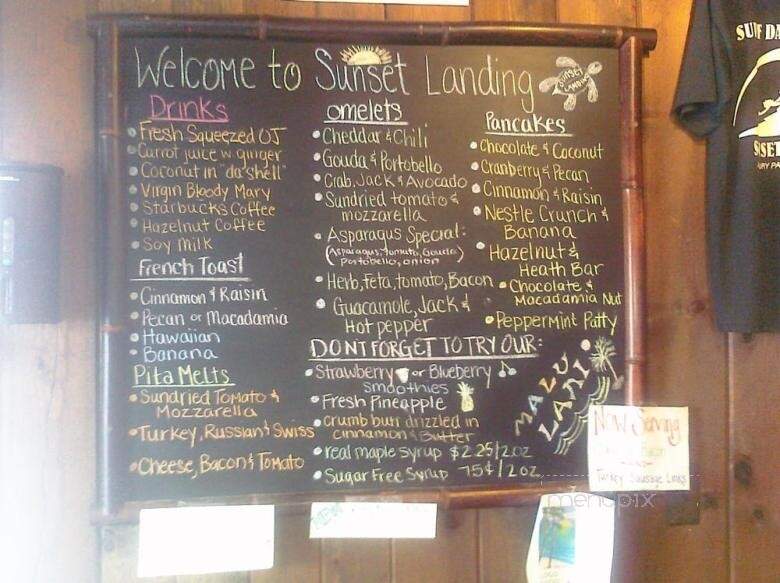 Welcome to Sunset Landing
SUNSET
LANDING
Drinks
Fresh Squeezed OJ
Carrot juice w ginger
Coconut in "da shell"
Virgin Bloody Mary
Starbucks Coffee
Hazelnut Coffee
Soy milk
French Toast
Cinnamon & Raisin
Pecan or Macadamia
Hawaiian
Banana
Pita Melts
Sundried Tomato &
Mozzarella
Turkey, Russian & Swiss
Cheese, Bacon & Tomato
omelets
Cheddar & Chili
Gouda & Portobello
Crab, Jack & Avocado
Sundried tomato &
mozzarella
Asparagus Special:
(Asparagus, tomato, Gouda,
Portobello, onion
Herb, Feta, tomato, Bacon
Guacamole, Jack &
Hot pepper
Pancakes
Chocolate & Coconut
Cranberry & Pecan
Cinnamon & Raisin
Nestle Crunch &
Banana
Hazelnut &
Heath Bar
Chocolate &
Macadamia Nut
Peppermint Patty
DONT FORGET TO TRY OUR:
Strawberry or Blueberry
Smoothies
Fresh Pineapple
crumb bun drizzled in
cinnamon & Butter
real maple syrup $2.25/2oz
Sugar Free Syrup 75¢/2oz
MALU
LANI
Now Serving
Turkey Sausage Links
menupix